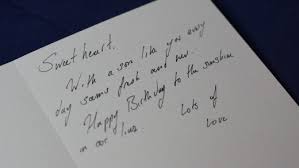 Sweetheart,
With a son like you every
day seems fresh and new.
Happy Birthday to the sunshine
in our lives
Lots of
Love